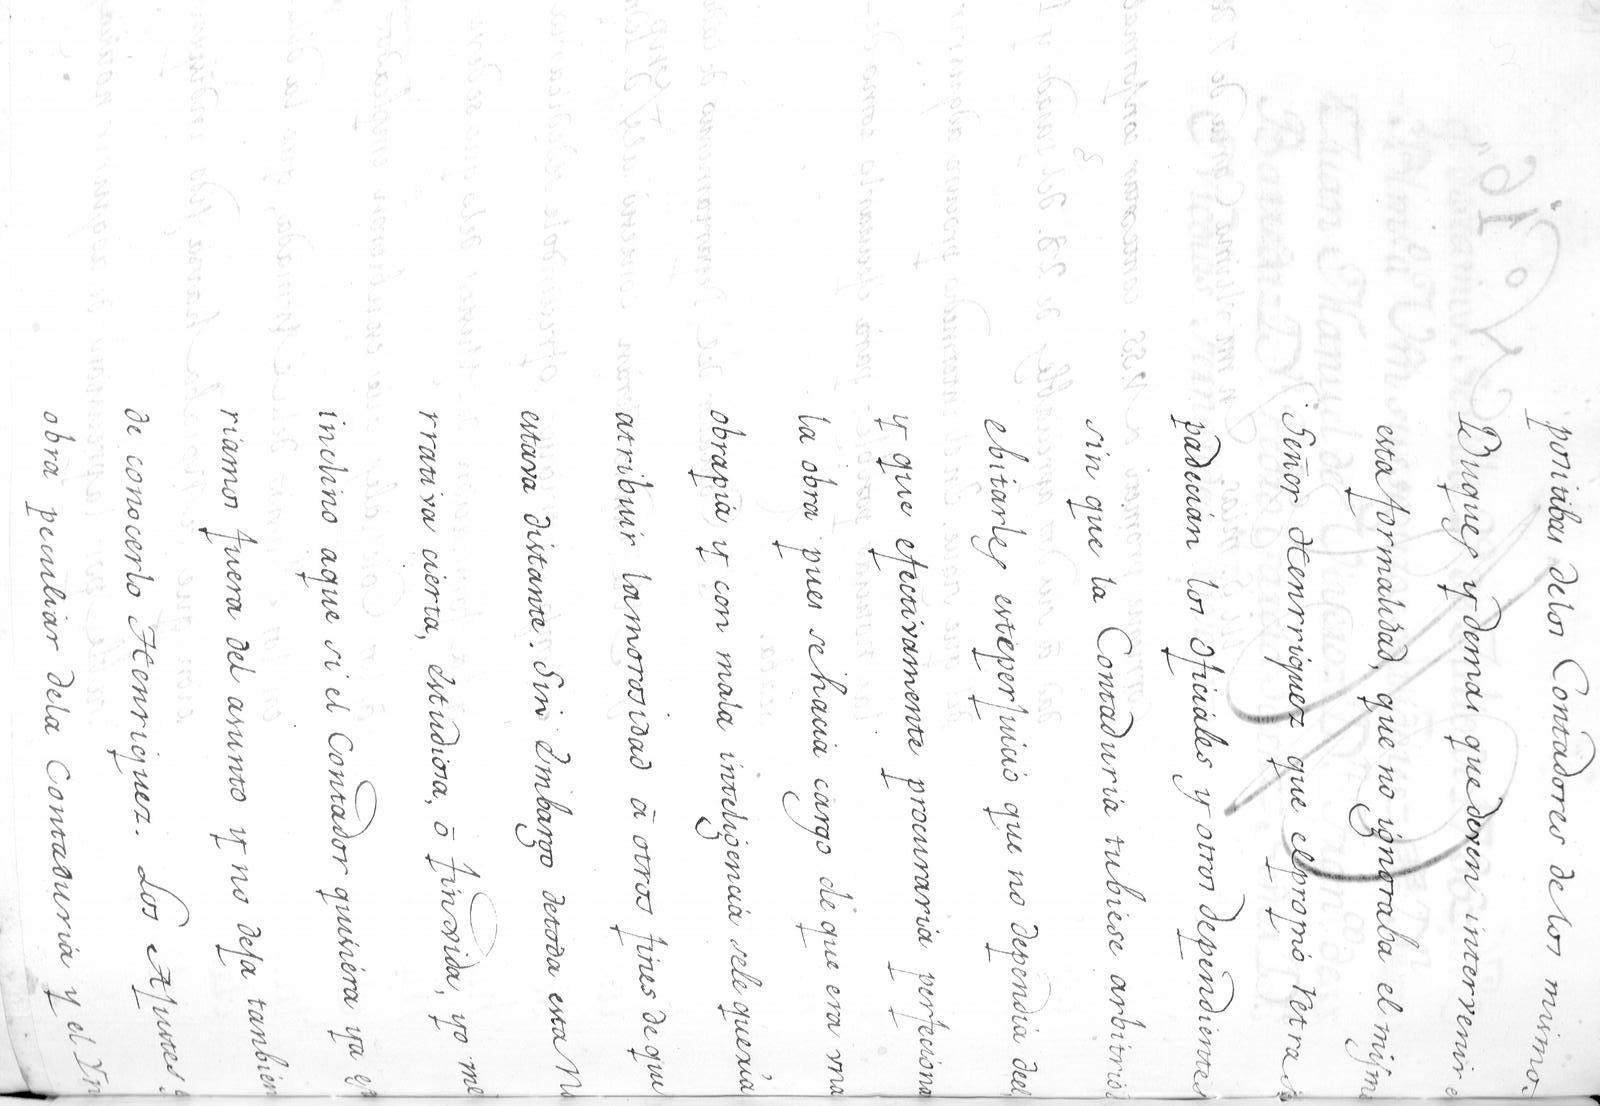 N.º 16
positibas delos Contadores de los mismos
Buques y demas que deven intervenir e
esta formalidad, que no ignoraba el mism
Señor Henrriquez que el propio retras
padecian los oficiales y otros dependientes
sin que la Contaduria tubiese arbitrio
ebitarles este perjuicio que no dependia deel
y que efectivamente procuraria perfeciona
la obra pues se hacia cargo de que era vna
obrapia y con mala inteligencia sele queria
atribuir lamorosidad à otros fines de que
estava distante. Sin embargo detoda esta Na
rratiba cierta, estudiosa, ò finxida, yo me
inclino aque si el Contador quisiera ya es
riamos fuera del asunto y no deja tambien
de conocerlo Henriquez. Los Ajustes
obra peculiar dela Contaduria y el Yn